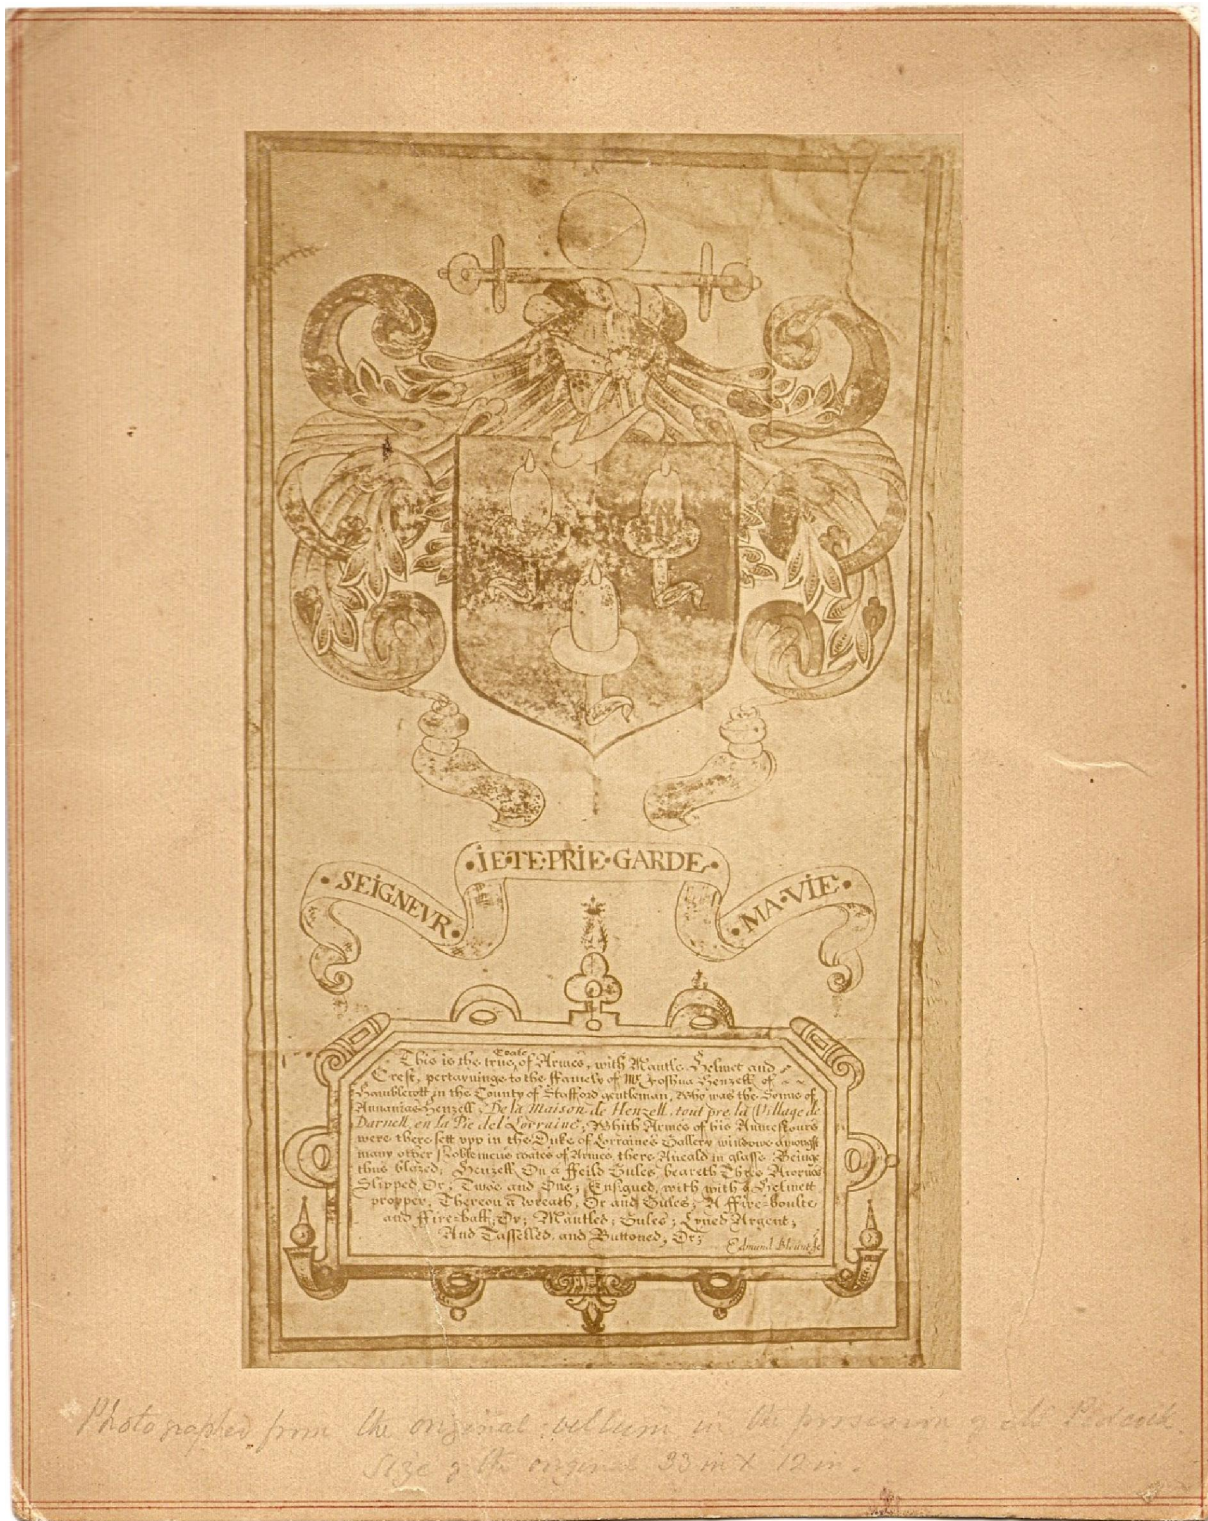 · SEIGNEVR · · IE · TE · PRIE · GARDE · · MA · VIE ·
This is the true Coate of Armes, with Mantle Helmet and
Crest, pertayninge to the ffamely of Mr Joshua Henzell of
Hamblecott in the County of Stafford gentleman, Who was the Sonne of
Annanias Henzell, De la Maison de Henzell tout pre la Village de
Darnell en la Pie de l' Lorraine; Which Armes of his Auncestours
were there sett vpp in the Duke of Lorraines Gallery windowe amongst
many other Noblemens coates of Armes there Aneald in glasse Beinge
thus blazed; Henzell, On a ffeild Gules beareth Three Acornes
Slipped, Or; Twoe and One; Ensigned, with with a Helmett
propper, Thereon a wreath, Or and Gules; A ffire=boulte
and ffire=ball, Or; Mantled; Gules; Lyned Argent;
And Tasselled and Buttoned, Or;
Edmund Blount
Photographed from the original vellum in the possession of
Size of the original 33 in X 12 in.